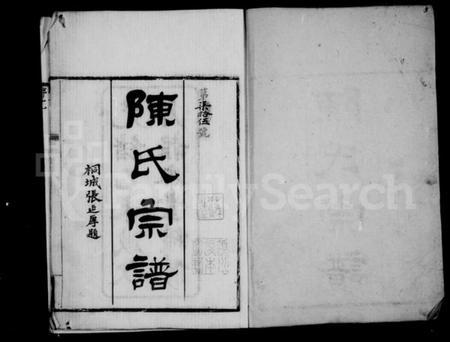 第柒拾伍號
陳氏宗譜
桐城張廷厚題
FamilySearch